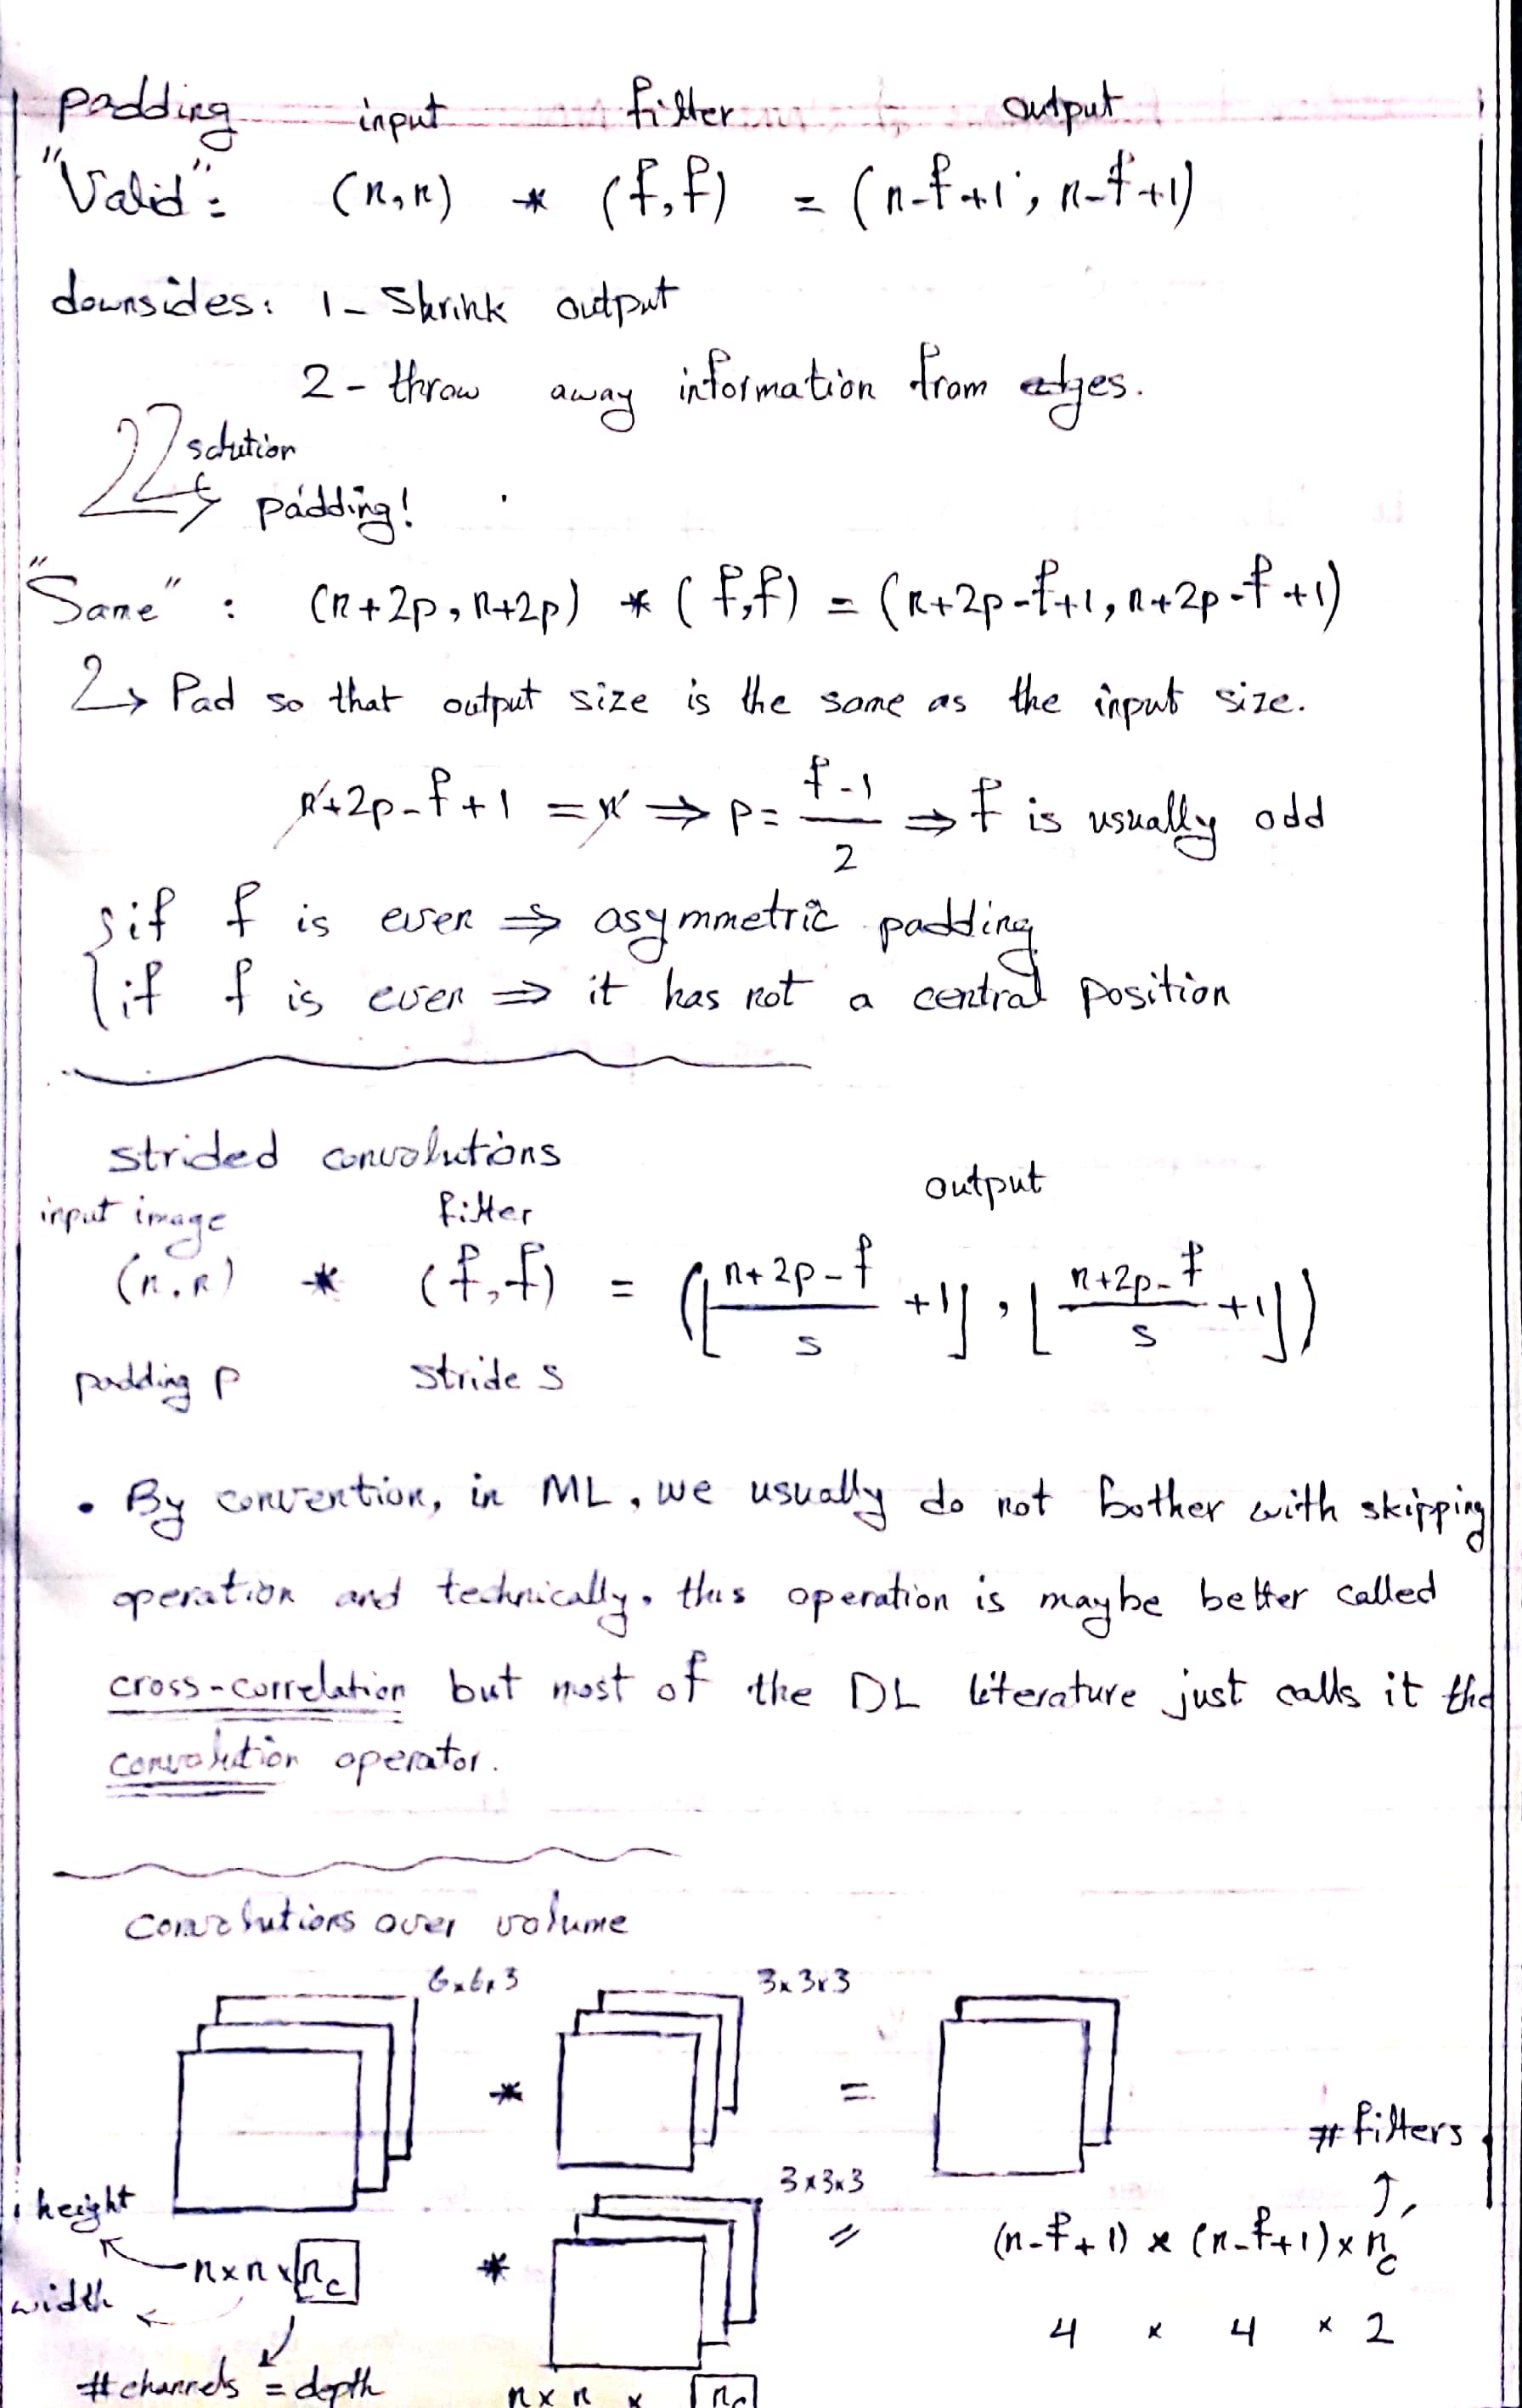 padding input filter output
"Valid": (n,n) * (f,f) = (n-f+1, n-f+1)
downsides: 1- Shrink output
2- throw away information from edges.
solution
padding!
"Same" : (n+2p, n+2p) * (f,f) = (n+2p-f+1, n+2p-f+1)
↳ Pad so that output size is the same as the input size.
n+2p-f+1 = n ⇒ p = (f-1)/2 ⇒ f is usually odd
{ if f is even ⇒ asymmetric padding
if f is even ⇒ it has not a central position
strided convolutions
input image filter output
(n,n) * (f,f) = (⌊(n+2p-f)/s +1⌋, ⌊(n+2p-f)/s +1⌋)
padding p stride s
• By convention, in ML, we usually do not bother with skipping
operation and technically, this operation is maybe better called
cross-correlation but most of the DL literature just calls it the
convolution operator.
convolutions over volume
6x6x3 3x3x3
* =
# filters
3x3x3
height
n x n x nc * = (n-f+1) x (n-f+1) x n'c
width
4 x 4 x 2
#channels = depth
n x n x nc